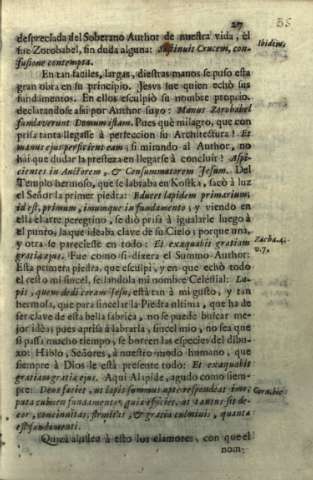 27
despreciada del Soberano Author de nuestra vida, el
fue Zorobabel, sin duda alguna: Sustinuit Crucem, con-
Ibidem.
fusione contempta.
En tan faciles, largas, diestras manos se puso esta
gran obra en su principio. Jesvs fue quien echò sus
fundamentos. En ellos esculpiò su nombre propio,
declarandose assi por Author suyo: Manus Zorobabel
fundaverunt Domum istam. Pues què milagro, que con
prisa tanta llegasse à perfeccion su Architectura? Et
manus ejus perficient eam; si mirando al Author, no
hai que dudar la presteza en llegarse à concluir? Aspi-
cientes in Auctorem, & Consummatorem Jesum. Del
Templo hermoso, que se labraba en Kostka, sacò à luz
el Señor la primer piedra: Educet lapidem primarium,
id est, primum, imumque in fundamento; y viendo en
ella el arte peregrino, se diò prisa à igualarle luego à
el punto, la que ideaba clave de su Cielo; porque una,
y otra se pareciesse en todo: Et exaquabit gratiam
Zacha. 4.
gratia ejus. Fue como si dixera el Summo Author:
v. 7.
Esta primera piedra, que esculpi, y en que echò todo
el resto mi sincèl, sellandola mi nombre Celestial: La-
pis, quem dedi coram Jesu, està tan à mi gusto, y tan
hermosa, que para sincelar la Piedra ultima, que ha de
ser clave de esta bella fabrica, no se puede buscar me-
jor idèa; pues aprisa à labrarla, sincel mio, no sea que
si passa mucho tiempo, se borren las especies del dibu-
xo: Hablo, Señores, à nuestro modo humano, que
siempre à Dios le està presente todo: Et exaquabit
gratiam gratia ejus. Aqui Alapide, agudo como siem-
pre: Deus faciet, ut lapis summus apte respondeat imo;
puta culmen fundamento; quia efficiet, ut tantus sit de-
cor, concinnitas, firmitas, & gratia culminis, quanta
est fundamenti.
à esto los clamores, con que el
nom-